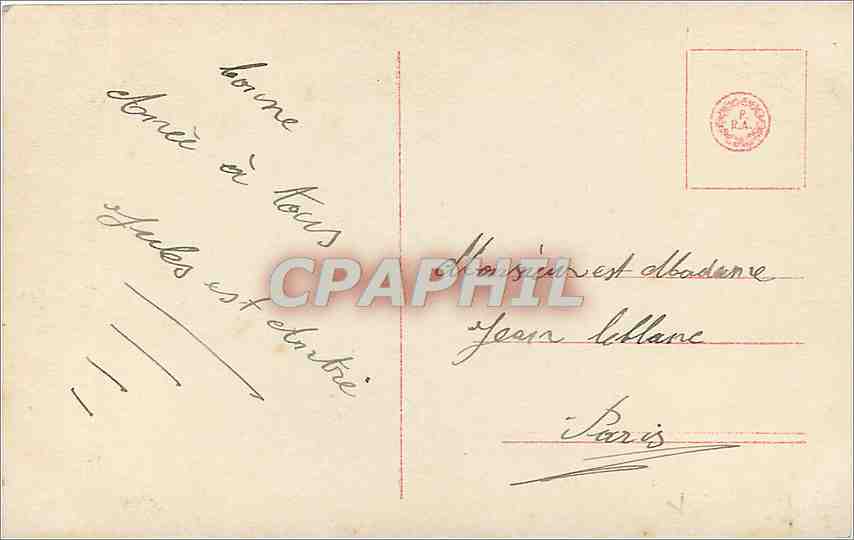 bonne
Année à tous
Jules est André
Monsieur est Madame
Jean leblanc
Paris
P.
R.A.
CPAPHIL